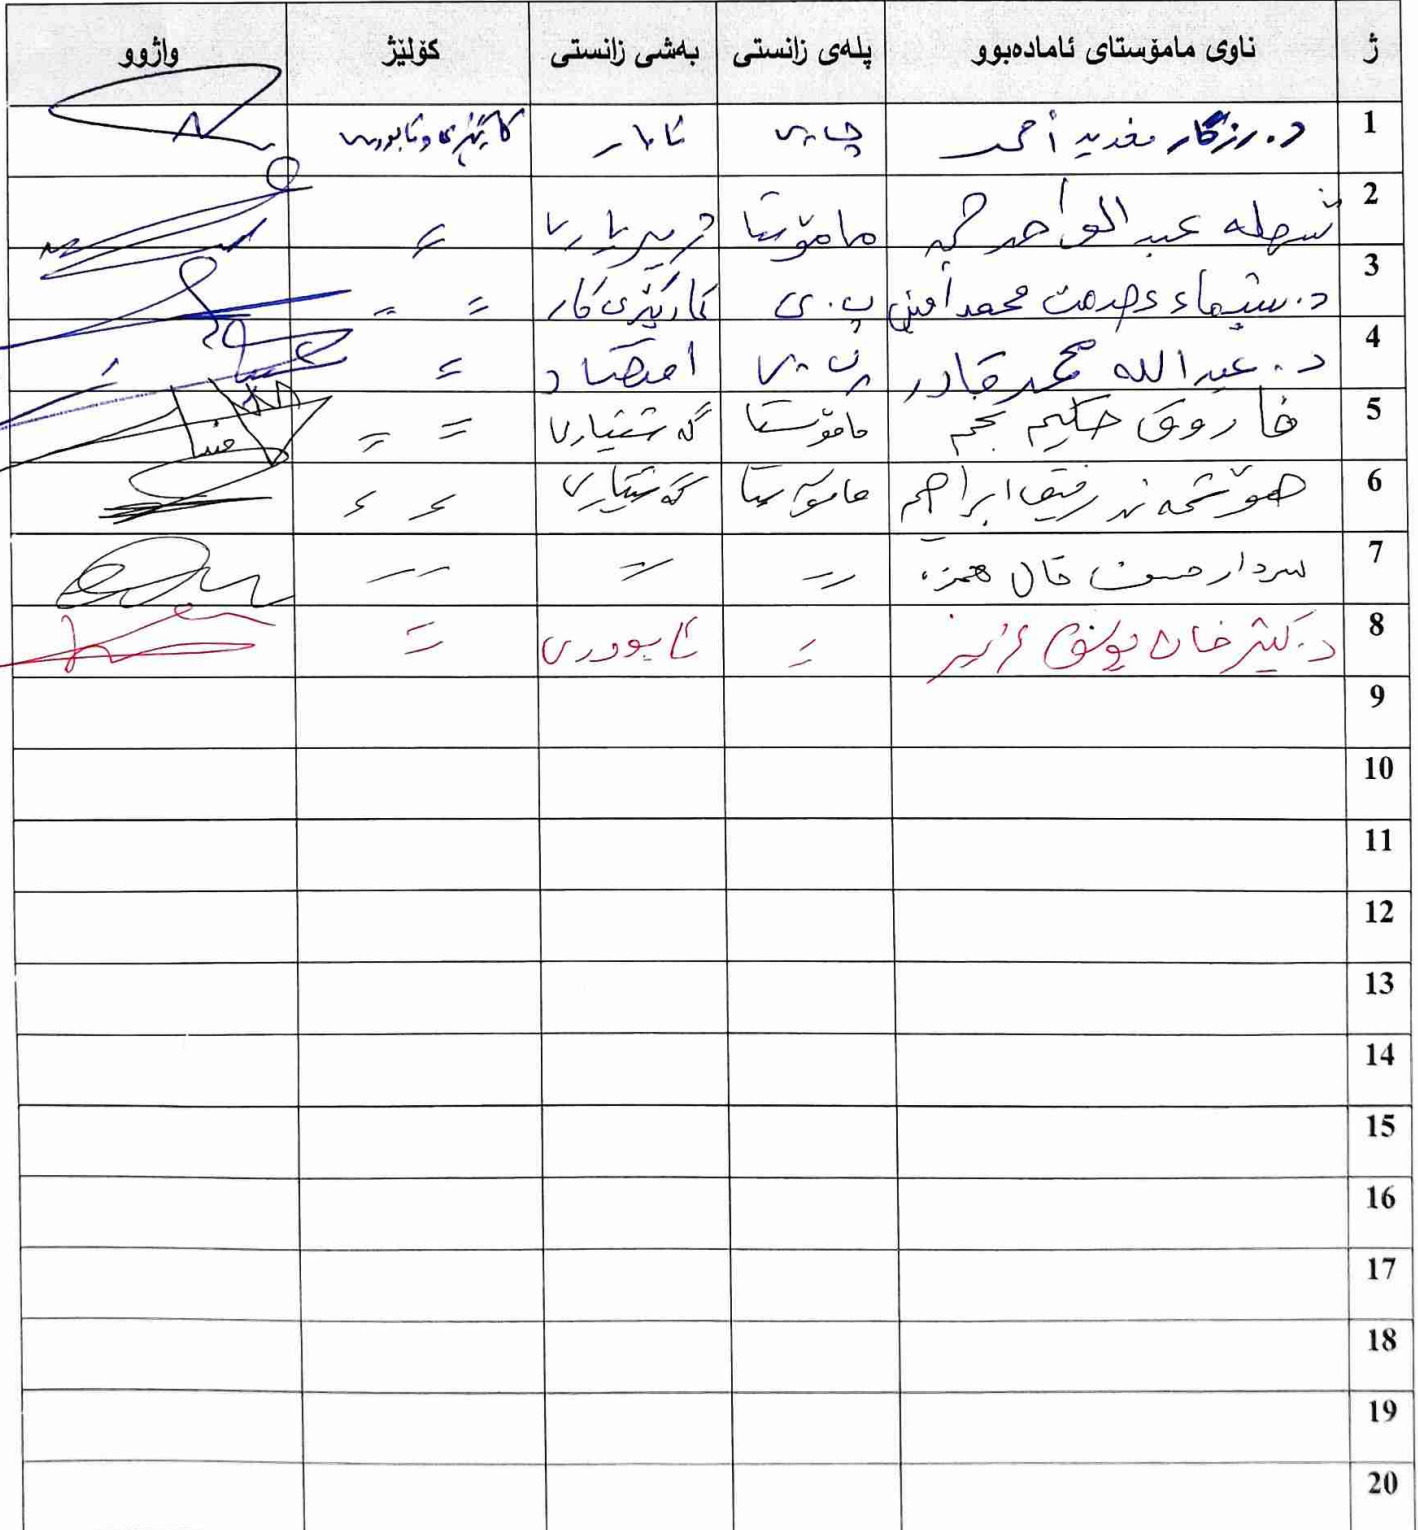 ژ ناوی مامۆستای ئامادەبوو پلەی زانستی بەشی زانستی کۆلێژ واژوو
1 د. رزگار مغدید أحمد ئامار
2 عبد الواحد مامۆستا =
3 د. شیماء عصمت محمد أمین پ.ی کارگێری کار = =
4 د. عبدالله محمد قادر پ.ی اقتصاد =
5 فاروق حکیم نجم مامۆستا گەشتیاری = =
6 هۆشمەند رفیق ابراهیم مامۆستا گەشتیاری = =
7 سردار حسن خال همزە = = =
8 د. خان = ئابووری =
9
10
11
12
13
14
15
16
17
18
19
20